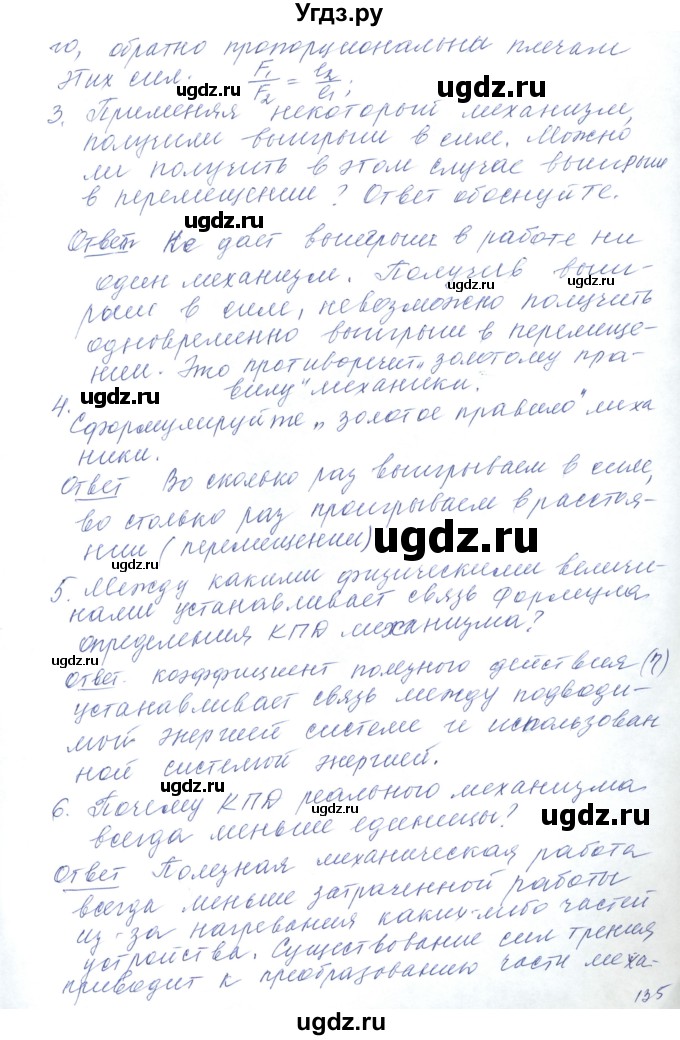 Угдз.ру
го, обратно пропорциональны плечам
этих сил. F₁/F₂ = l₂/l₁;
3. Применяя некоторый механизм,
ugdz.ru
получили выигрыш в силе. Можно
ли получить в этом случае выигрыш
в перемещении? Ответ обоснуйте.
ugdz.ru
Ответ Не дает выигрыш в работе ни
один механизм. Получив выиг-
ugdz.ru ugdz.ru
рыш в силе, невозможно получить
одновременно выигрыш в перемеще-
нии. Это противоречит „золотому пра-
вилу" механики.
ugdz.ru
4.
Сформулируйте „золотое правило" меха
ники.
Ответ Во сколько раз выигрываем в силе,
во столько раз проигрываем в расстоя-
нии (перемещении)
ugdz.ru
5. Между какими физическими величи-
нами устанавливает связь формула
ugdz.ru
определения КПД механизма?
ugdz.ru
Ответ. коэффициент полезного действия (η)
устанавливает связь между подводи-
мой энергией системе и использован
ной системой энергией.
ugdz.ru
6. Почему КПД реального механизма
всегда меньше единицы?
ugdz.ru
Ответ Полезная механическая работа
всегда меньше затраченной работы
ugdz.ru
из-за нагревания каких-либо частей
устройства. Существование сил трения
ugdz.ru
приводит к преобразованию части меха-
135
ugdz.ru